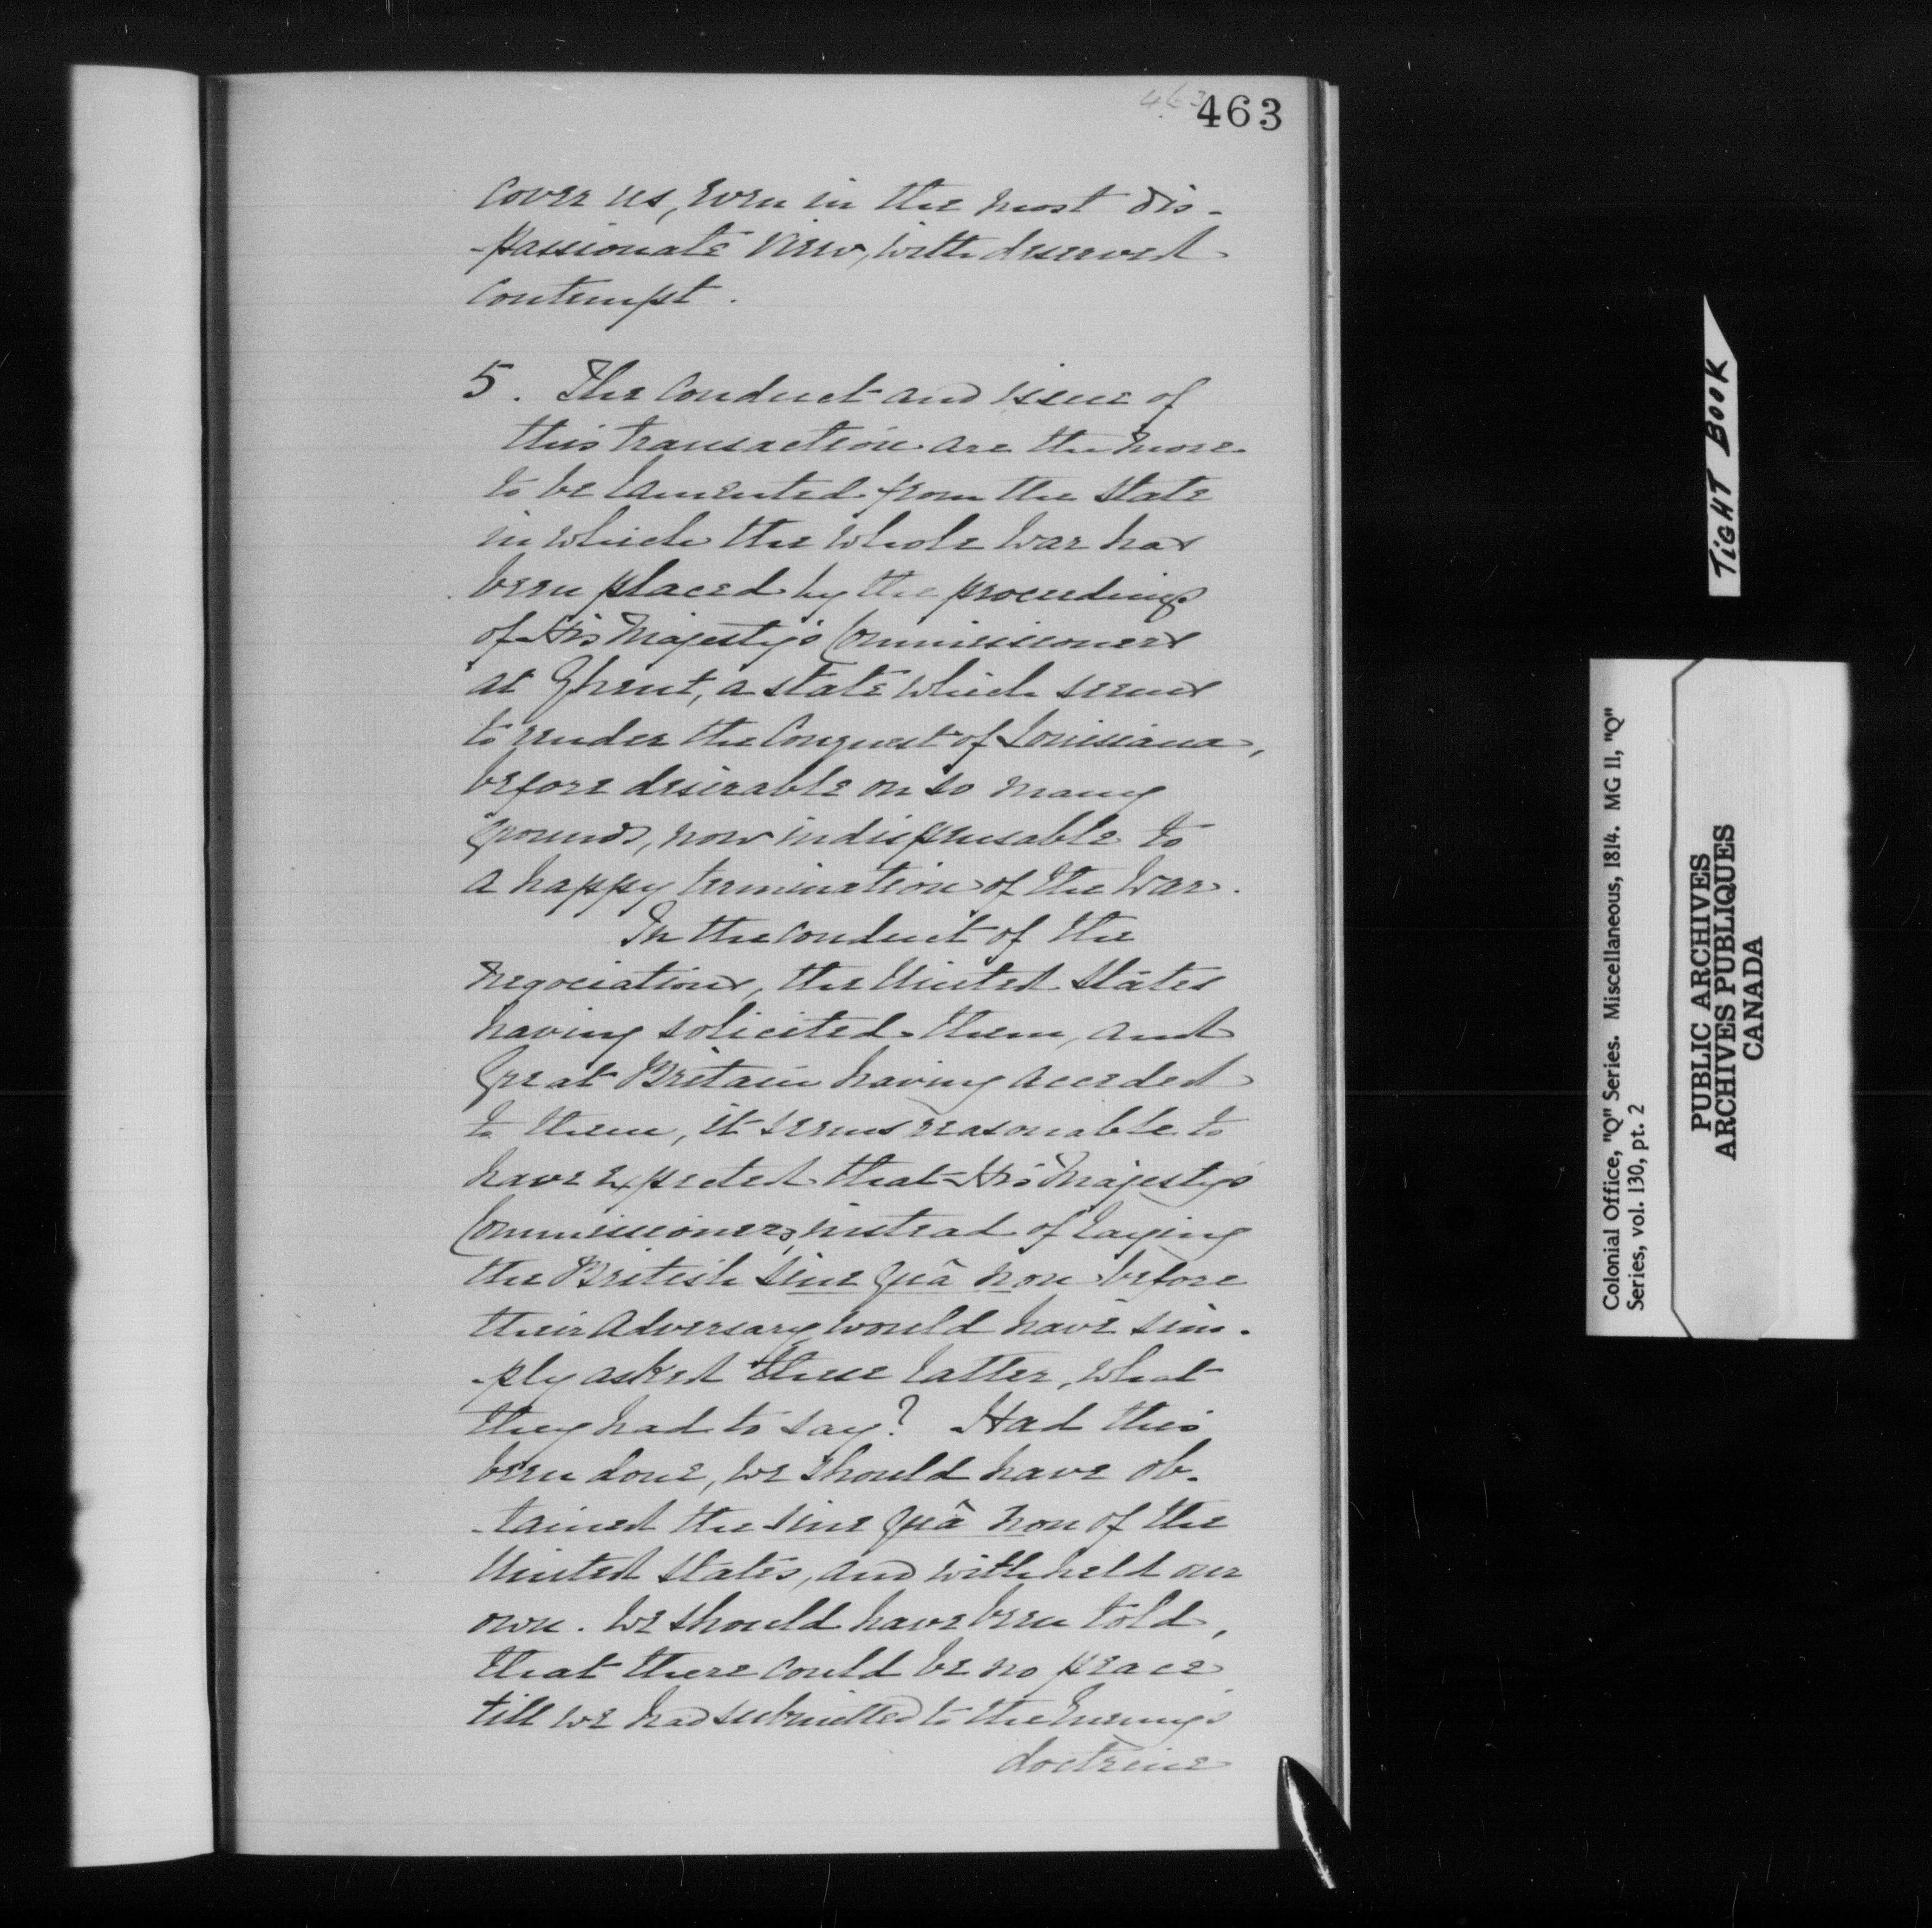 463
463
cover us, even in the most dis-
-passionate view, with deserved
contempt.
5. The conduct and issue of
this transaction are the more
to be lamented from the state
in which the whole war has
been placed by the proceedings
of His Majesty's Commissioners
at Ghent, a state which seems
to render the Conquest of Louisiana,
before desirable on so many
grounds, now indispensable to
a happy termination of the War.
In the conduct of the
Negociations, the United States
having solicited them, and
Great Britain having acceded
to them, it seems reasonable to
have expected that His Majesty's
Commissioners, instead of laying
the British sine quâ non before
their Adversary would have sim-
-ply asked these latter, what
they had to say? Had this
been done, we should have ob-
-tained the sine quâ non of the
United States, and withheld our
own. We should have been told,
that there could be no peace
till we had submitted to the Enemy's
doctrine
TiGHT BOOK
Colonial Office, "Q" Series. Miscellaneous, 1814. MG 11, "Q"
Series, vol. 130, pt. 2
PUBLIC ARCHIVES
ARCHIVES PUBLIQUES
CANADA